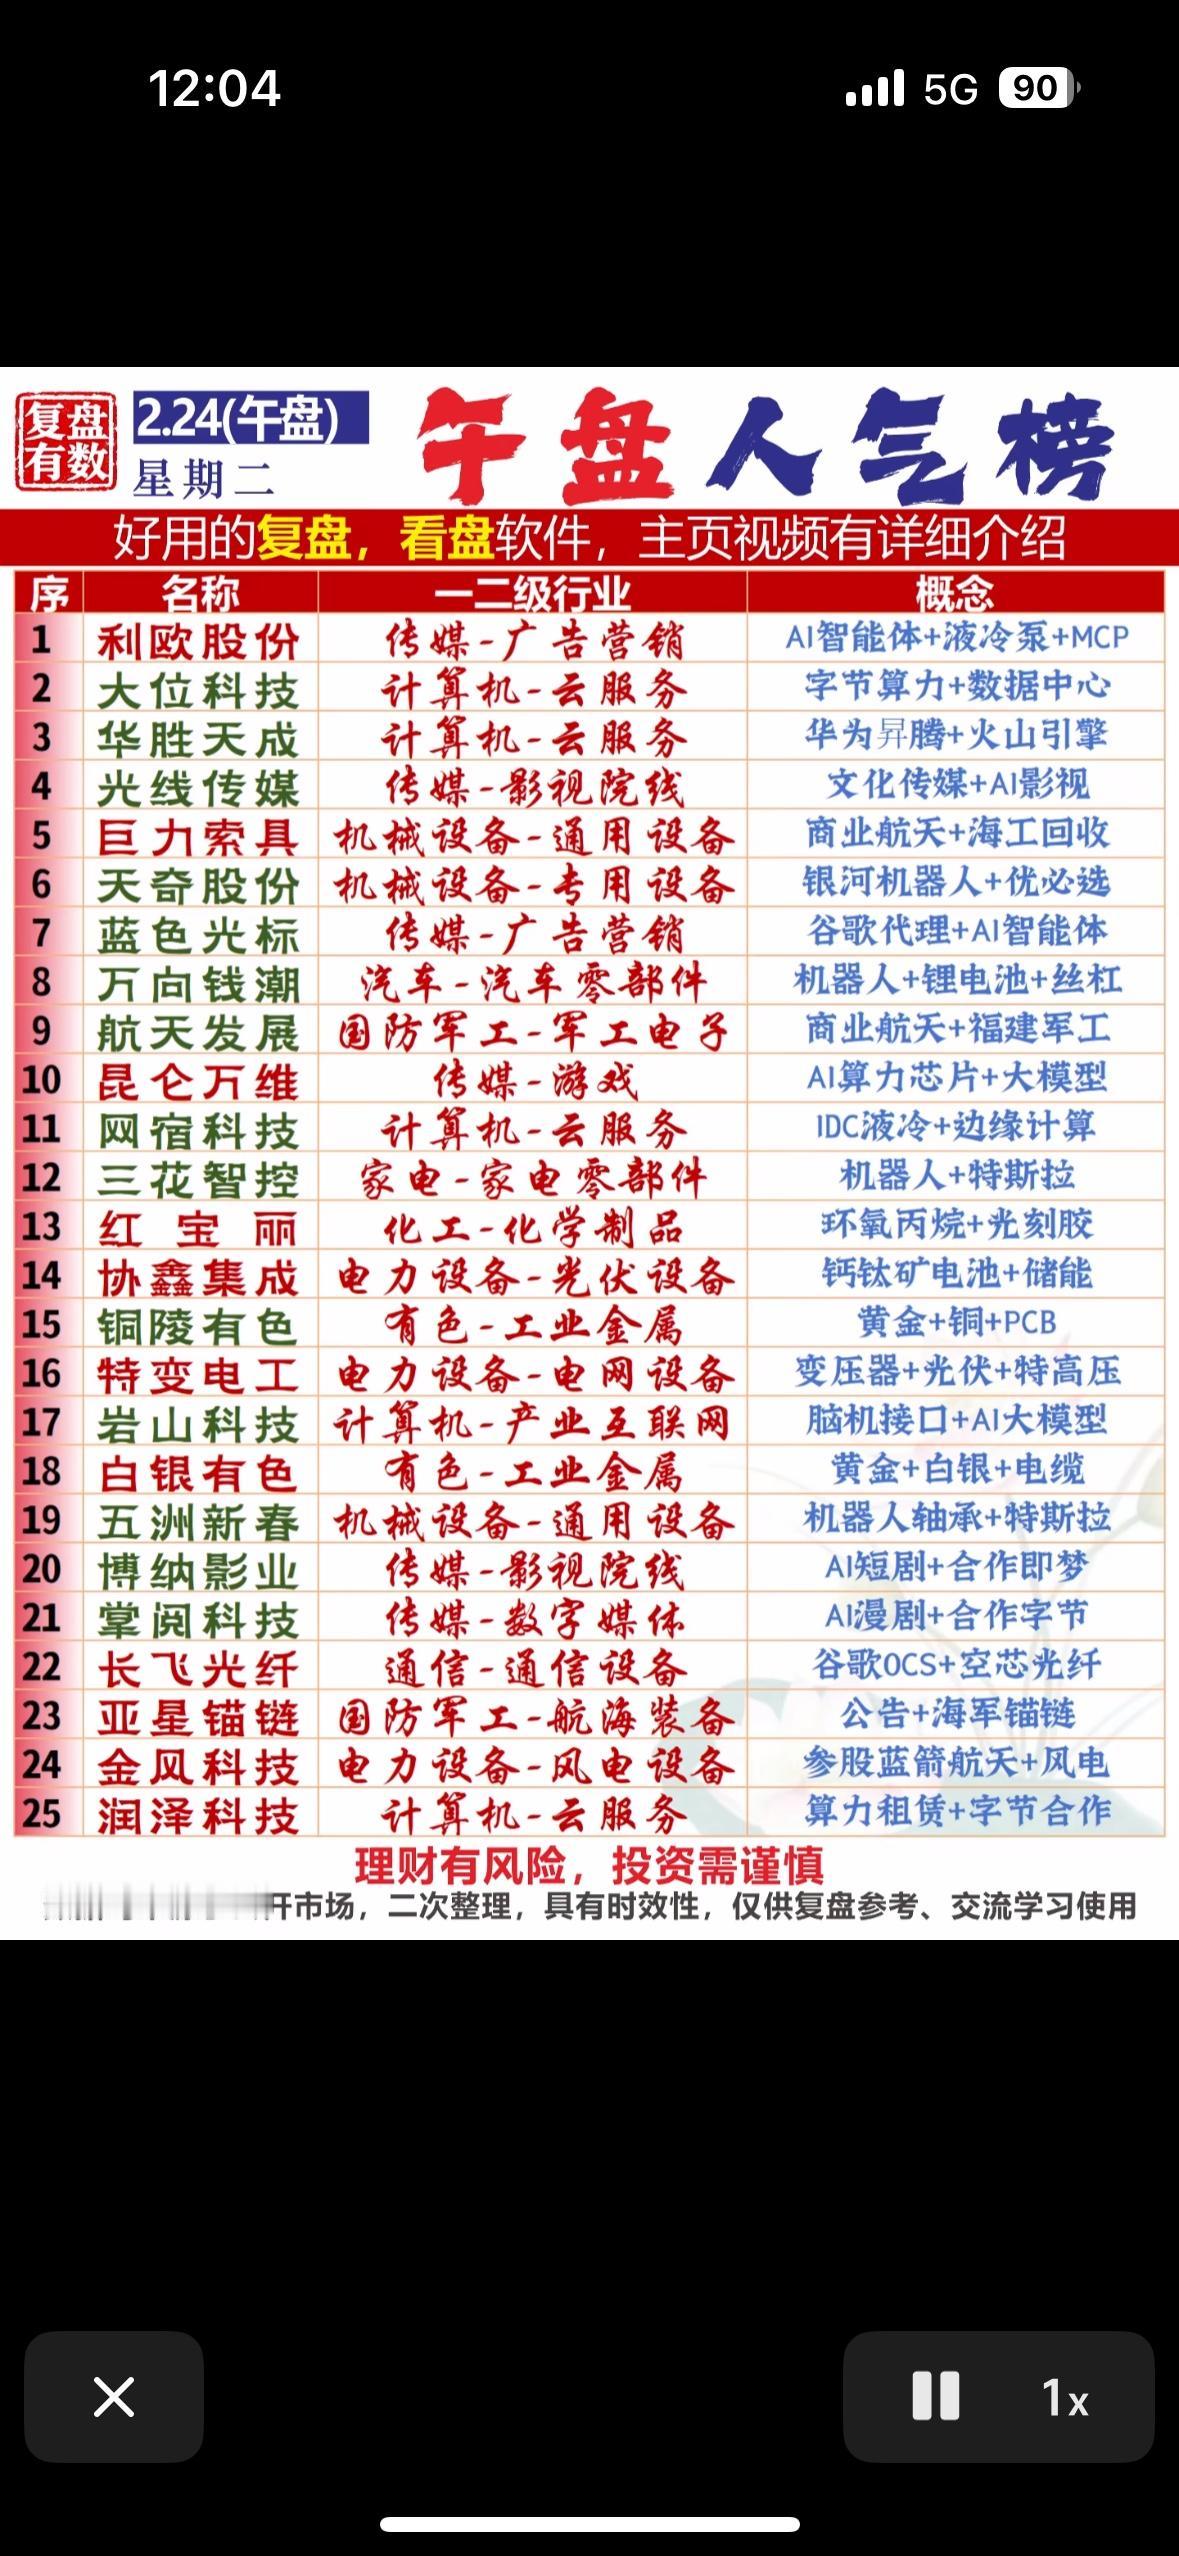 12:04
5G 90
复盘有数
2.24(午盘)
星期二
午盘人气榜
好用的复盘，看盘软件，主页视频有详细介绍
序 名称 一二级行业 概念
1 利欧股份 传媒-广告营销 AI智能体+液冷泵+MCP
2 大位科技 计算机-云服务 字节算力+数据中心
3 华胜天成 计算机-云服务 华为昇腾+火山引擎
4 光线传媒 传媒-影视院线 文化传媒+AI影视
5 巨力索具 机械设备-通用设备 商业航天+海工回收
6 天奇股份 机械设备-专用设备 银河机器人+优必选
7 蓝色光标 传媒-广告营销 谷歌代理+AI智能体
8 万向钱潮 汽车-汽车零部件 机器人+锂电池+丝杠
9 航天发展 国防军工-军工电子 商业航天+福建军工
10 昆仑万维 传媒-游戏 AI算力芯片+大模型
11 网宿科技 计算机-云服务 IDC液冷+边缘计算
12 三花智控 家电-家电零部件 机器人+特斯拉
13 红宝丽 化工-化学制品 环氧丙烷+光刻胶
14 协鑫集成 电力设备-光伏设备 钙钛矿电池+储能
15 铜陵有色 有色-工业金属 黄金+铜+PCB
16 特变电工 电力设备-电网设备 变压器+光伏+特高压
17 岩山科技 计算机-产业互联网 脑机接口+AI大模型
18 白银有色 有色-工业金属 黄金+白银+电缆
19 五洲新春 机械设备-通用设备 机器人轴承+特斯拉
20 博纳影业 传媒-影视院线 AI短剧+合作即梦
21 掌阅科技 传媒-数字媒体 AI漫剧+合作字节
22 长飞光纤 通信-通信设备 谷歌OCS+空芯光纤
23 亚星锚链 国防军工-航海装备 公告+海军锚链
24 金风科技 电力设备-风电设备 参股蓝箭航天+风电
25 润泽科技 计算机-云服务 算力租赁+字节合作
理财有风险，投资需谨慎
市场，二次整理，具有时效性，仅供复盘参考、交流学习使用
1x